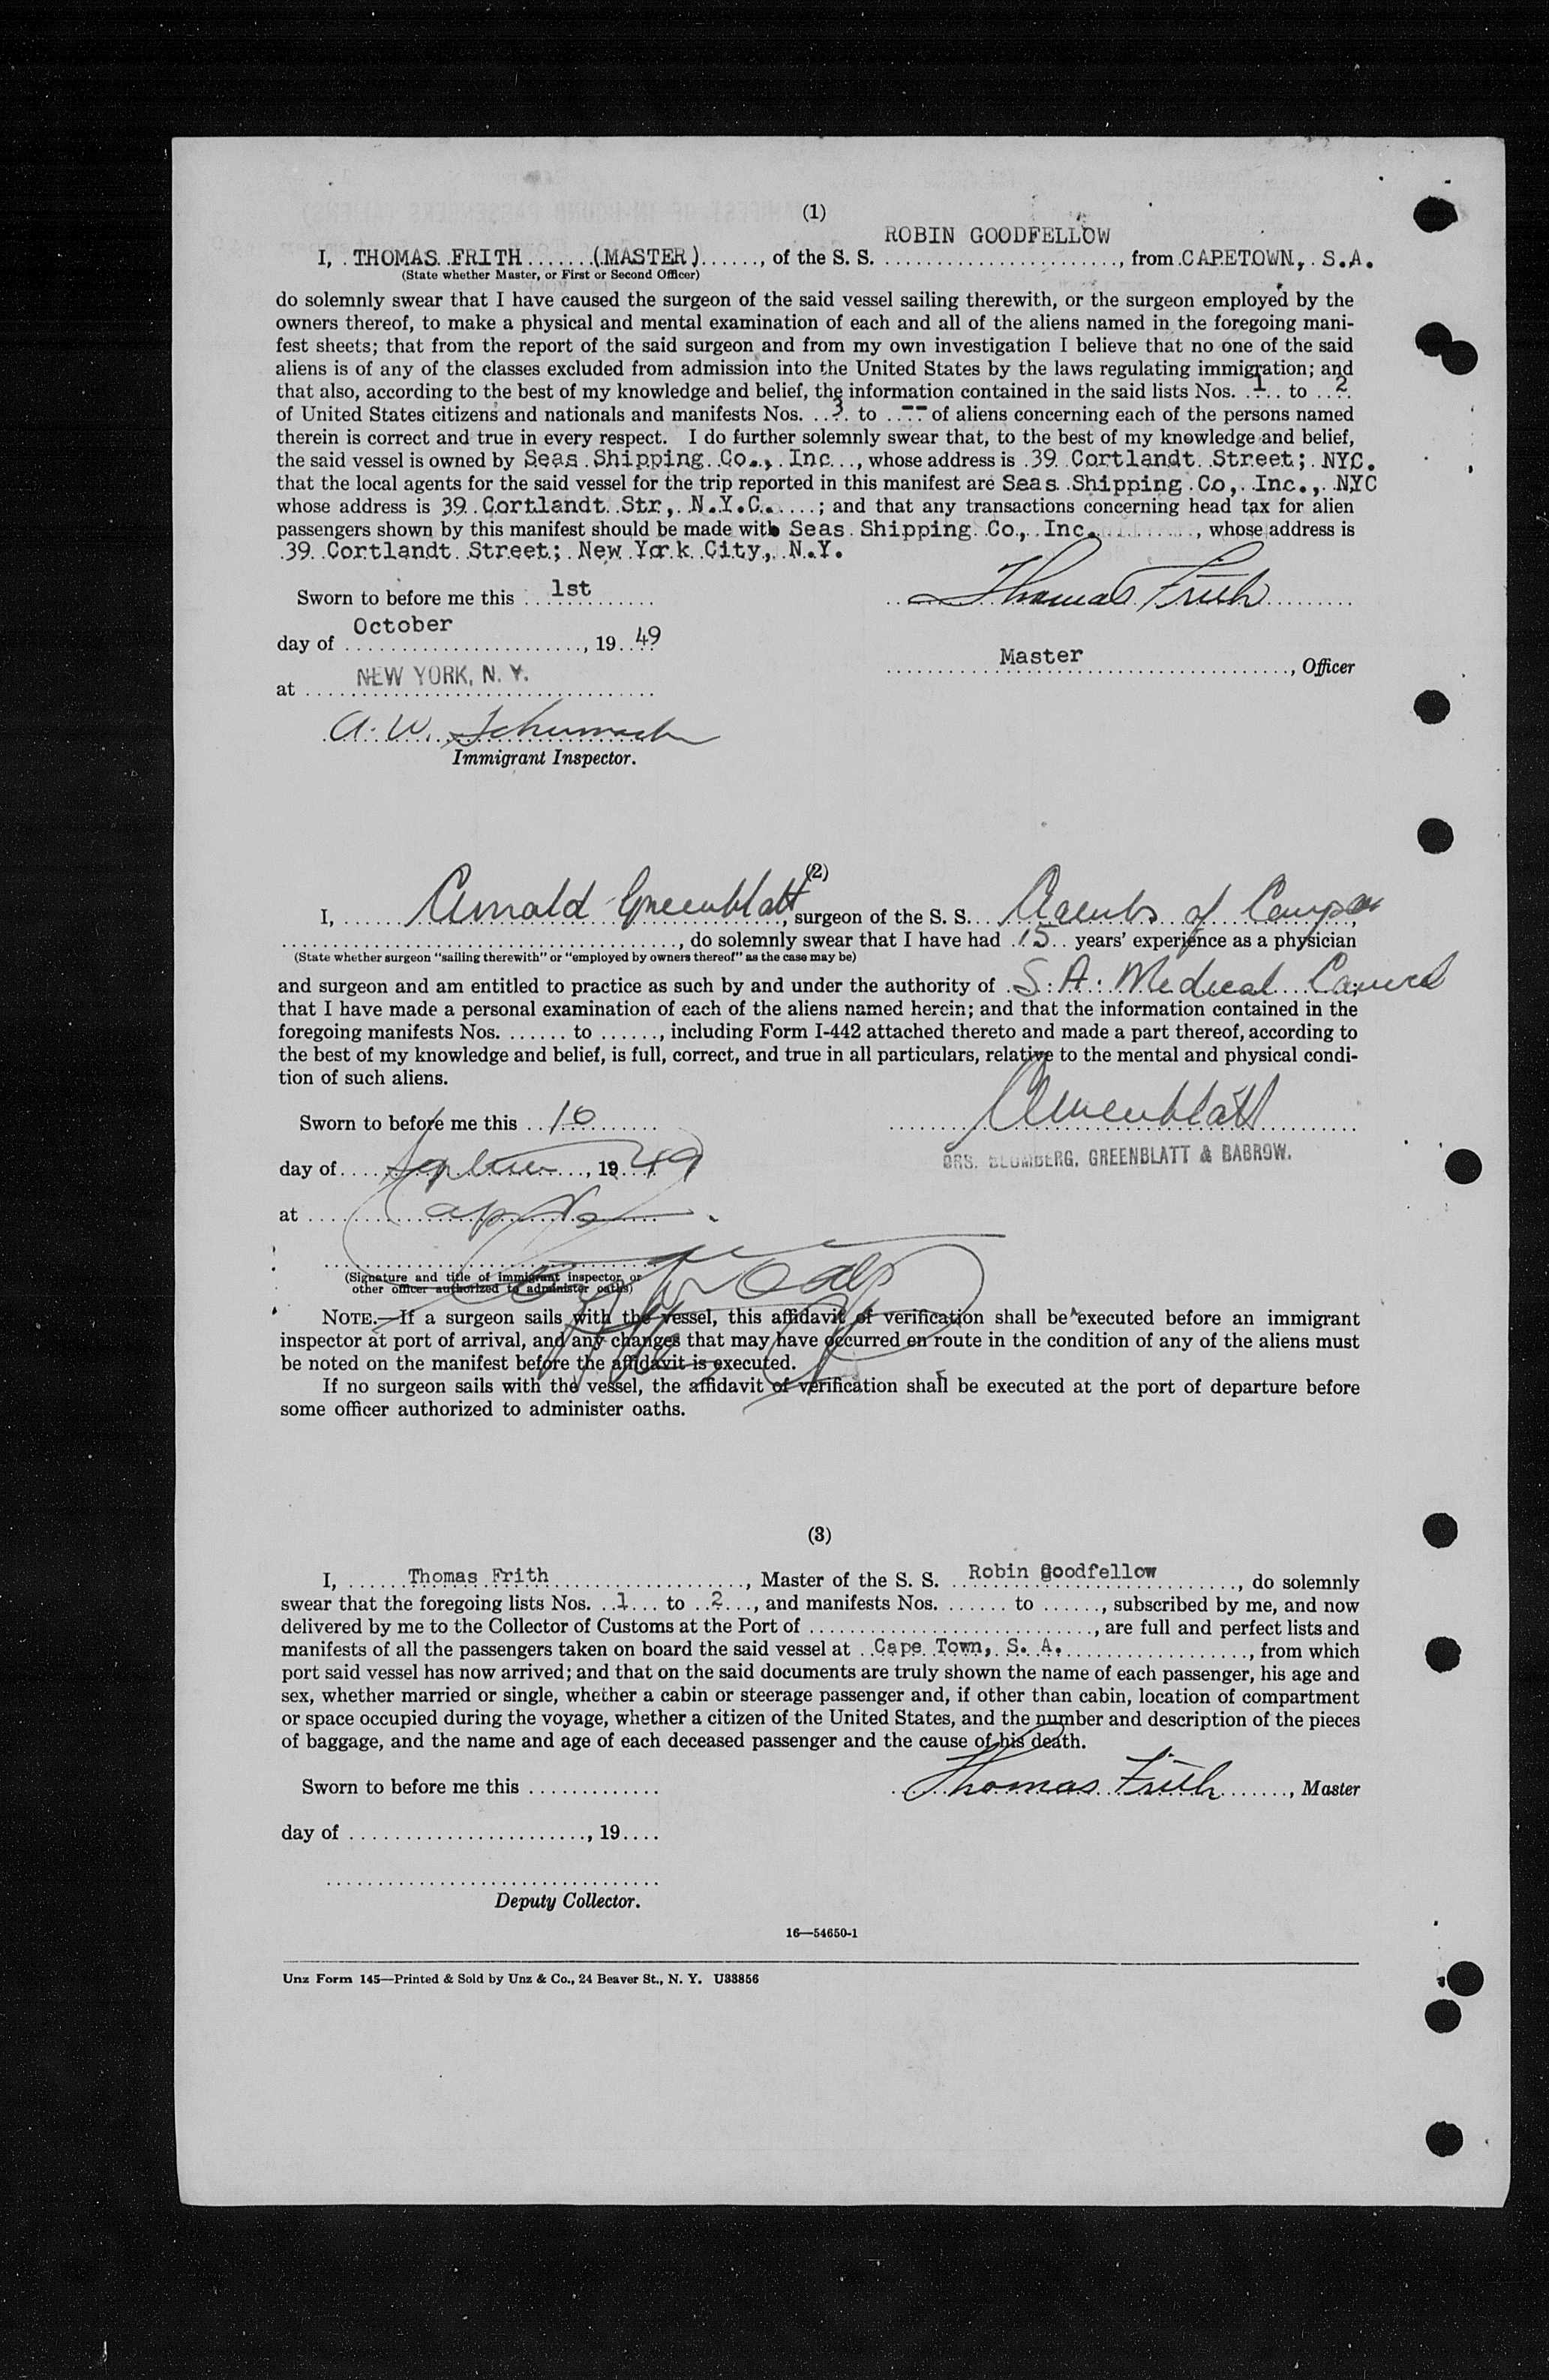 (1)
ROBIN GOODFELLOW
I, THOMAS FRITH (MASTER), of the S. S. , from CAPETOWN, S.A.
(State whether Master, or First or Second Officer)
do solemnly swear that I have caused the surgeon of the said vessel sailing therewith, or the surgeon employed by the
owners thereof, to make a physical and mental examination of each and all of the aliens named in the foregoing mani-
fest sheets; that from the report of the said surgeon and from my own investigation I believe that no one of the said
aliens is of any of the classes excluded from admission into the United States by the laws regulating immigration; and
that also, according to the best of my knowledge and belief, the information contained in the said lists Nos. 1 to 2
of United States citizens and nationals and manifests Nos. 3 to -- of aliens concerning each of the persons named
therein is correct and true in every respect. I do further solemnly swear that, to the best of my knowledge and belief,
the said vessel is owned by Seas Shipping Co., Inc., whose address is 39 Cortlandt Street; NYC.
that the local agents for the said vessel for the trip reported in this manifest are Seas Shipping Co, Inc., NYC
whose address is 39 Cortlandt Str, N.Y.C. ; and that any transactions concerning head tax for alien
passengers shown by this manifest should be made with Seas Shipping Co, Inc. , whose address is
39 Cortlandt Street; New York City, N.Y.
Sworn to before me this 1st
Thomas Frith
day of October, 19 49
Master, Officer
at NEW YORK, N. Y.
A. W. Schumach
Immigrant Inspector.
(2)
I, Arnold Greenblatt, surgeon of the S. S. Agents of
, do solemnly swear that I have had 15 years' experience as a physician
(State whether surgeon "sailing therewith" or "employed by owners thereof" as the case may be)
and surgeon and am entitled to practice as such by and under the authority of S. A. Medical
that I have made a personal examination of each of the aliens named herein; and that the information contained in the
foregoing manifests Nos. to , including Form I-442 attached thereto and made a part thereof, according to
the best of my knowledge and belief, is full, correct, and true in all particulars, relative to the mental and physical condi-
tion of such aliens.
Sworn to before me this 16
AGreenblatt
day of September, 19 49
DRS. BLUMBERG, GREENBLATT & BABROW.
at
(Signature and title of immigrant inspector or
other officer authorized to administer oaths)
NOTE.—If a surgeon sails with the vessel, this affidavit of verification shall be executed before an immigrant
inspector at port of arrival, and any changes that may have occurred en route in the condition of any of the aliens must
be noted on the manifest before the affidavit is executed.
If no surgeon sails with the vessel, the affidavit of verification shall be executed at the port of departure before
some officer authorized to administer oaths.
(3)
I, Thomas Frith, Master of the S. S. Robin Goodfellow, do solemnly
swear that the foregoing lists Nos. 1 to 2, and manifests Nos. to , subscribed by me, and now
delivered by me to the Collector of Customs at the Port of , are full and perfect lists and
manifests of all the passengers taken on board the said vessel at Cape Town, S. A. , from which
port said vessel has now arrived; and that on the said documents are truly shown the name of each passenger, his age and
sex, whether married or single, whether a cabin or steerage passenger and, if other than cabin, location of compartment
or space occupied during the voyage, whether a citizen of the United States, and the number and description of the pieces
of baggage, and the name and age of each deceased passenger and the cause of his death.
Sworn to before me this
Thomas Frith, Master
day of , 19
Deputy Collector.
16—54650-1
Unz Form 145—Printed & Sold by Unz & Co., 24 Beaver St., N. Y. U33856